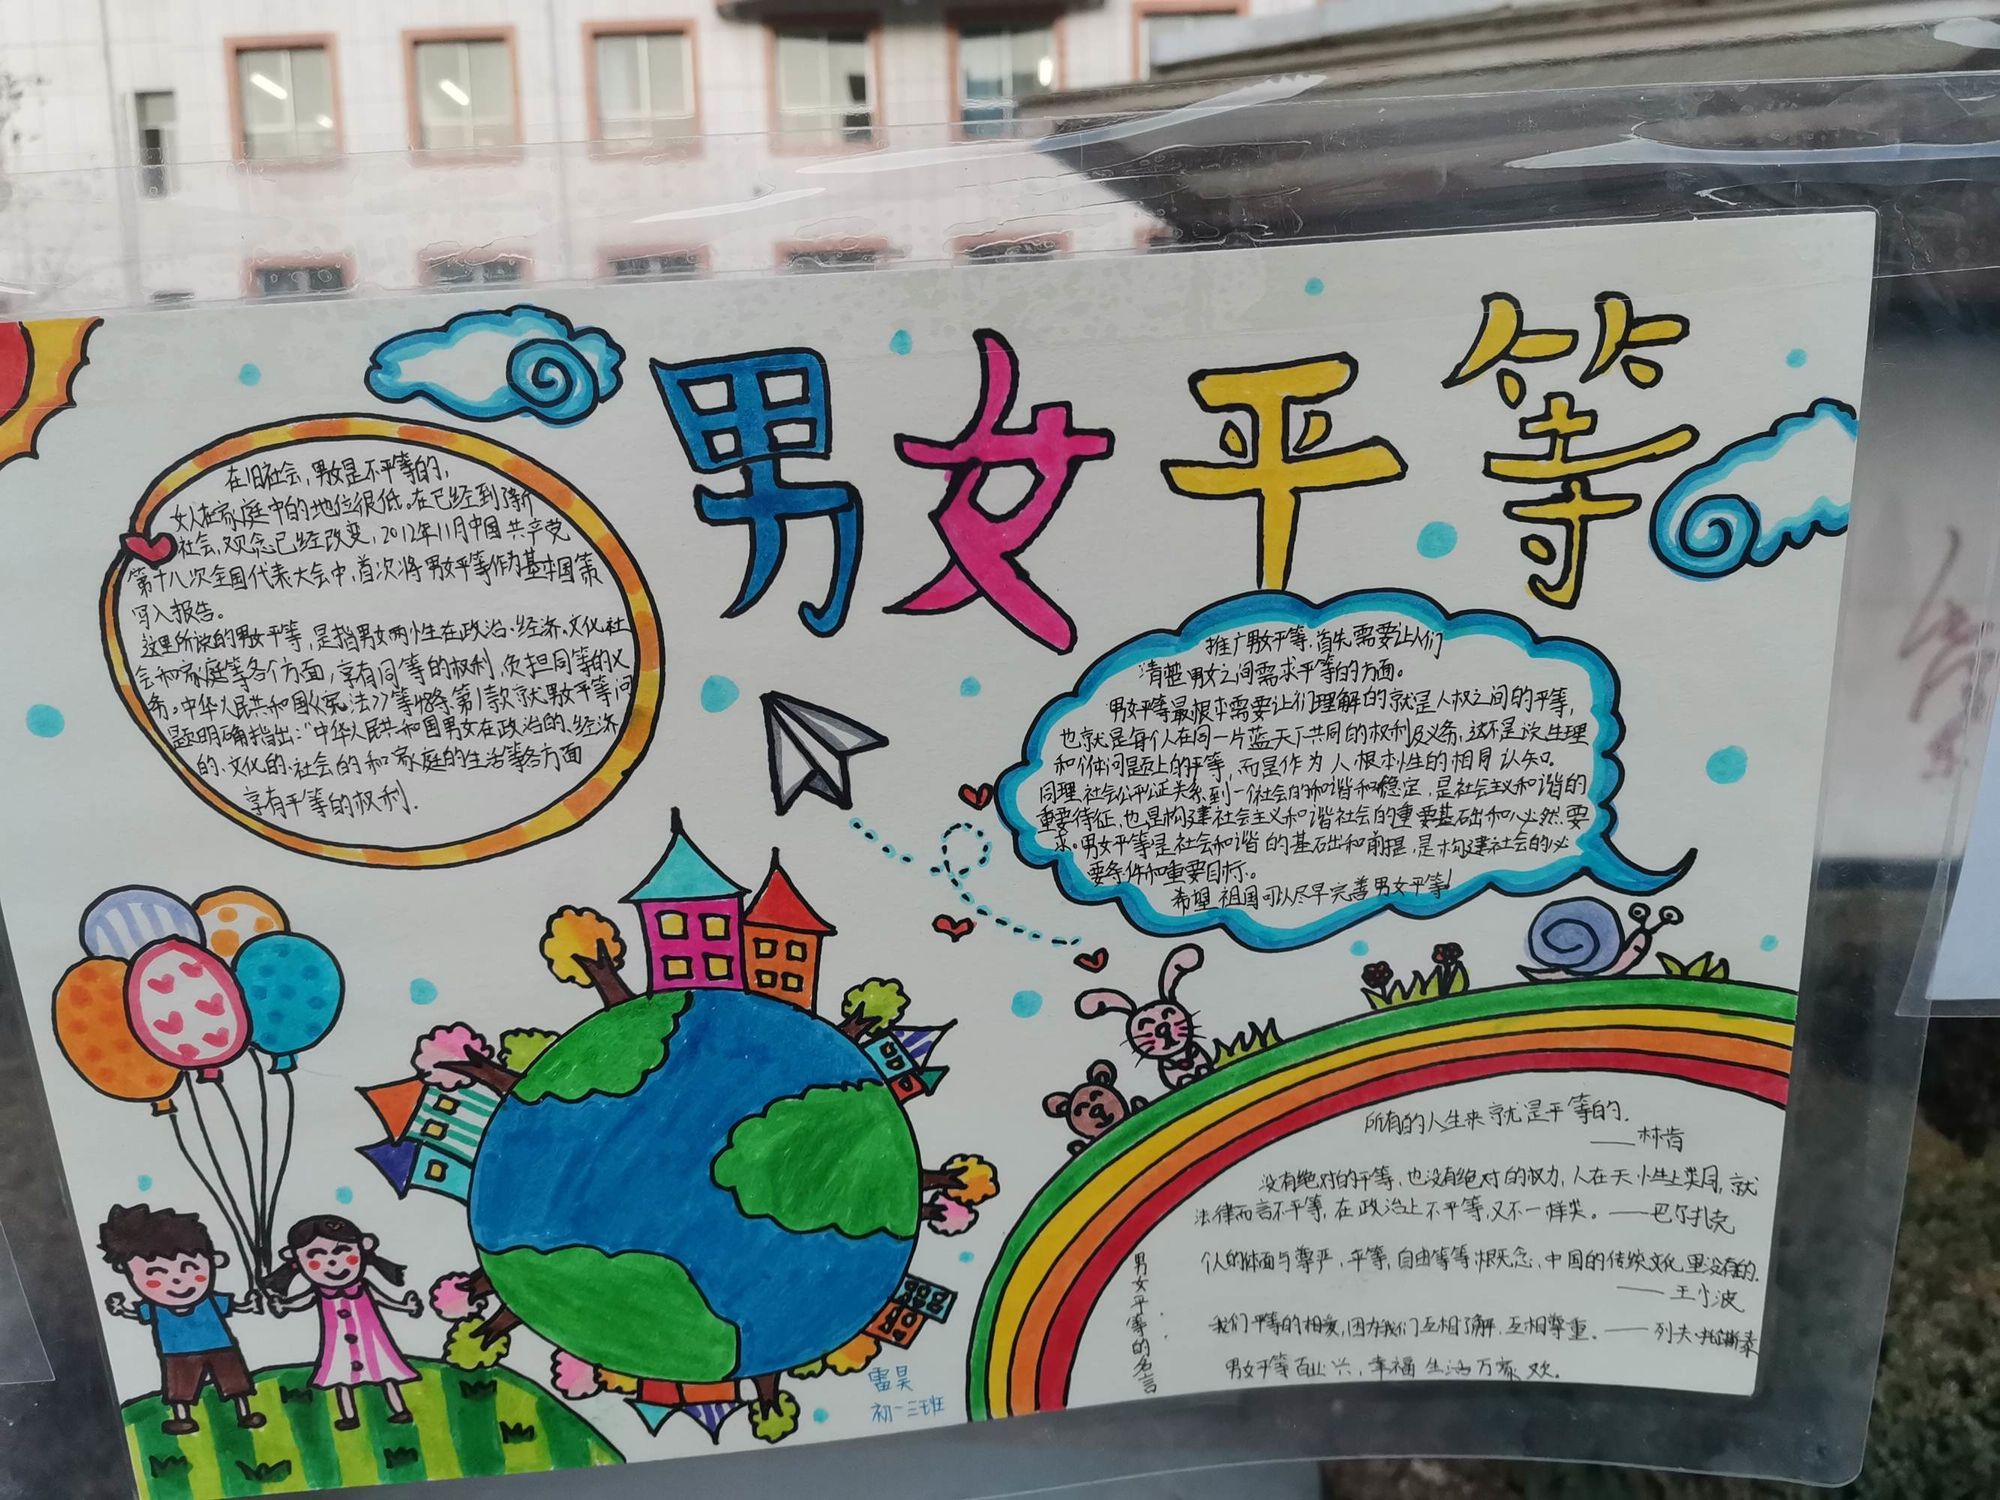 男女平等
在旧社会,男女是不平等的,
女人在家庭中的地位很低。在已经到了新
社会,观念已经改变,2012年11月中国共产党
第十八次全国代表大会中,首次将男女平等作为基本国策
写入报告。
这里所说的男女平等,是指男女两性在政治、经济、文化、社
会和家庭等各个方面,享有同等的权利,负担同等的义
务。中华人民共和国《宪法》等48条第1款就男女平等问
题明确指出:“中华人民共和国男女在政治的、经济
的、文化的、社会的和家庭的生活等各方面
享有平等的权利.
推广男女平等,首先需要让人们
清楚男女之间需求平等的方面。
男女平等最根本需要让们理解的就是人权之间的平等,
也就是每个人在同一片蓝天下共同的权利及义务,这不是说生理
和个体问题上的平等,而是作为人根本性的相同认知。
同理,社会公平公正关系到一个社会的和谐和稳定,是社会主义和谐的
重要特征,也是构建社会主义和谐社会的重要基础和必然要
求。男女平等是社会和谐的基础和前提,是构建社会的必
要条件和重要目标。
希望祖国可以尽早完善男女平等!
所有的人生来就是平等的.
——林肯
没有绝对的平等,也没有绝对的权力,人在天性上类同,就
法律而言不平等,在政治上不平等,又不一样类。——巴尔扎克
个人的体面与尊严,平等,自由等等概念,中国的传统文化里没有的.
——王小波
我们平等的相爱,因为我们互相了解,互相尊重.——列夫·托尔斯泰
男女平等百业兴,幸福生活万家欢.
男女平等的名言
雷昊
初一三班